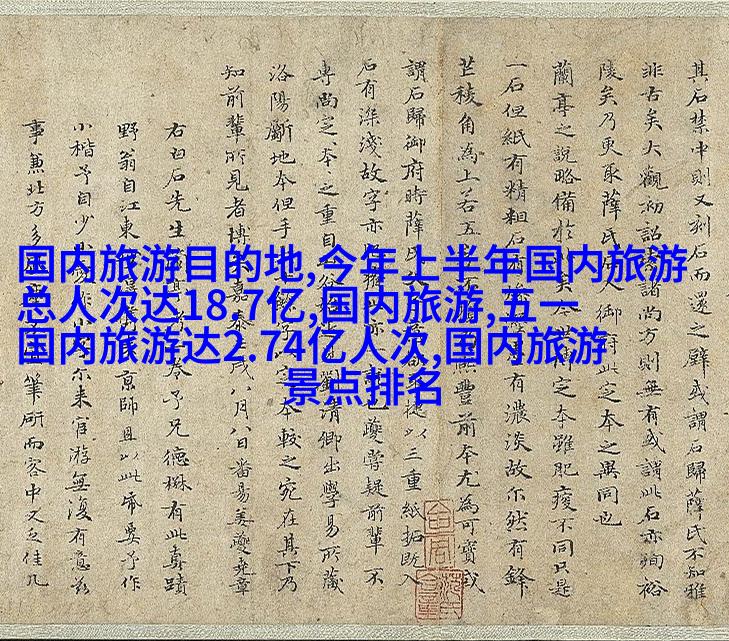 国内旅游目的地,今年上半年国内旅游
总人次达18.7亿,国内旅游,五一
国内旅游达2.74亿人次,国内旅游
景点排名
其石禁中則又刻石而還之壁或謂石歸薛氏不知雅
非古矣大觀初詔諸尚方則無有或謂此石亦殉裕
陵矣乃更取薛氏人御府此定本之異同也
蘭亭之說略備於此矣今定本雖肥瘦不同只是
一石但紙有精粗石有有濃淡故尔然有鋒
芒稜角為上若五豐前本尤為可寶或
謂石歸御府時薛氏以三重紙拓既入
石有深淺故字亦已夔嘗疑前輩不
專尚定本本之重自清卿出學易所藏
洛陽斷地本但手本較之宛在其下乃
知前輩所見者博嘉泰壬戌八月八日番昜姜夔堯章
右白石先生予兄德楙有此真蹟
野翁自江東京師且以此帋要予作
小楷予自少尔来官游無復有意茲
事兼北方多筆研而客中又乏佳几